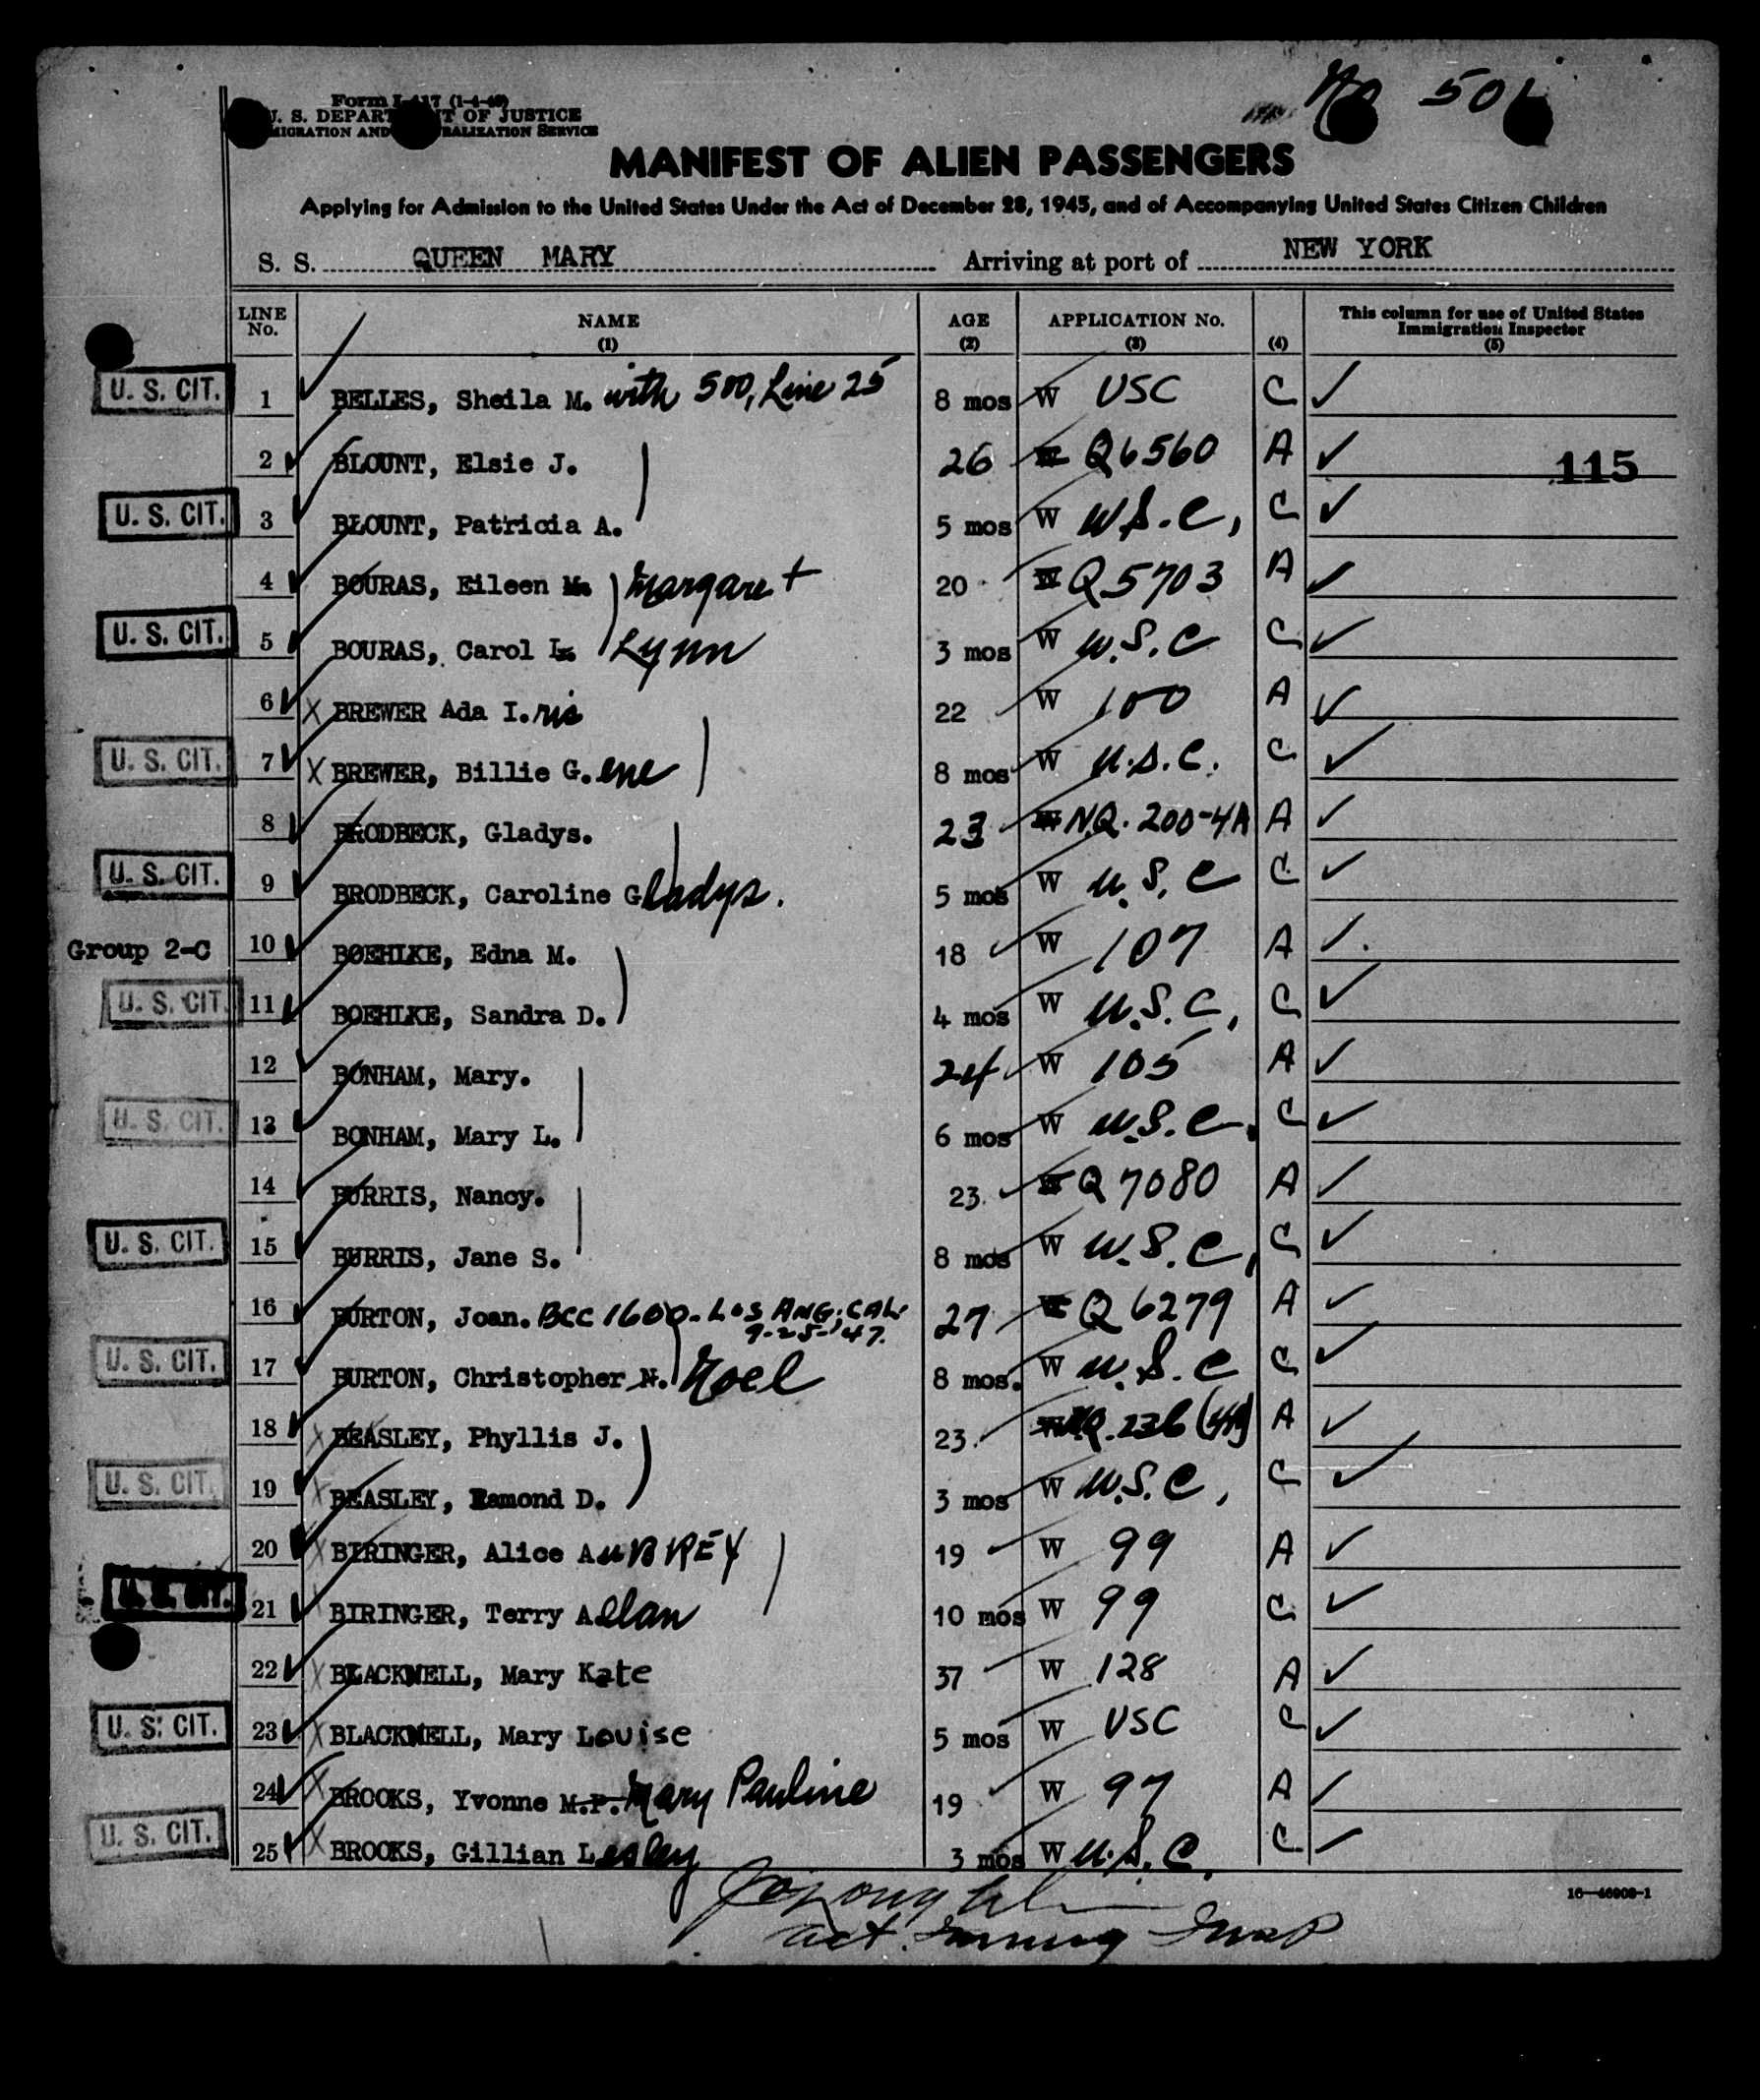 No 501
Form I-417 (1-4-46)
U. S. DEPARTMENT OF JUSTICE
IMMIGRATION AND NATURALIZATION SERVICE
MANIFEST OF ALIEN PASSENGERS
Applying for Admission to the United States Under the Act of December 28, 1945, and of Accompanying United States Citizen Children
S. S. QUEEN MARY Arriving at port of NEW YORK
LINE No. NAME (1) AGE (2) APPLICATION No. (3) (4) This column for use of United States Immigration Inspector (5)
U. S. CIT. 1 BELLES, Sheila M. with 500, Line 25 8 mos W USC C ✓
2 BLOUNT, Elsie J. 26 W Q6560 A ✓ 115
U. S. CIT. 3 BLOUNT, Patricia A. 5 mos W U.S.C, C ✓
4 BOURAS, Eileen M. Margaret 20 W Q5703 A ✓
U. S. CIT. 5 BOURAS, Carol L. Lynn 3 mos W U.S.C C ✓
6 X BREWER Ada I.ris 22 W 100 A ✓
U. S. CIT. 7 X BREWER, Billie G.ene 8 mos W U.S.C. C ✓
8 BRODBECK, Gladys. 23 W NQ. 200-4A A ✓
U. S. CIT. 9 BRODBECK, Caroline Gladys. 5 mos W U.S.C C ✓
Group 2-C 10 BOEHLKE, Edna M. 18 W 107 A ✓
U. S. CIT. 11 BOEHLKE, Sandra D. 4 mos W U.S.C, C ✓
12 BONHAM, Mary. 24 W 105 A ✓
U. S. CIT. 13 BONHAM, Mary L. 6 mos W U.S.C. C ✓
14 BURRIS, Nancy. 23. W Q7080 A ✓
U. S. CIT. 15 BURRIS, Jane S. 8 mos W U.S.C, C ✓
16 BURTON, Joan. BCC 1600-LOS ANG. CAL. 27 W Q6279 A ✓
9-25-'47.
U. S. CIT. 17 BURTON, Christopher N. Noel 8 mos. W U.S.C C ✓
18 X BEASLEY, Phyllis J. 23. NQ. 236 A ✓
U. S. CIT. 19 X BEASLEY, Ramond D. 3 mos W U.S.C, C ✓
20 X BIRINGER, Alice AUBREY 19 W 99 A ✓
U. S. CIT. 21 X BIRINGER, Terry Allan 10 mos W 99 C ✓
22 X BLACKWELL, Mary Kate 37 W 128 A ✓
U. S. CIT. 23 X BLACKWELL, Mary Louise 5 mos W USC C ✓
24 X BROOKS, Yvonne M.P. Mary Pauline 19 W 97 A ✓
U. S. CIT. 25 X BROOKS, Gillian Lesley 3 mos W U.S.C. C ✓
16—46909-1
act. Immig Insp